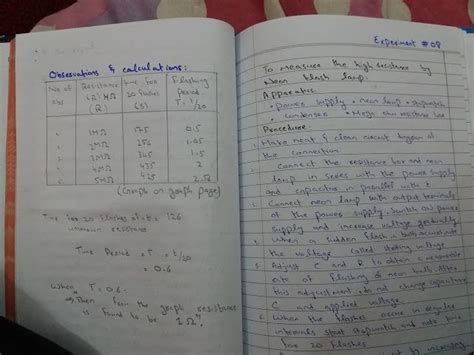 Observations & calculations:
No of obs
Resistance (R) MΩ (R)
time for 20 flashes (s)
Flashing period T = t/20
1MΩ 175 0.5
2MΩ 256 1.05
3MΩ 345 1.5
4MΩ 435 2
5MΩ 425
(Graph on graph page)
Time for 20 flashes 126
unknown resistance
Time Period = T = t/20
= 0.6
When T = 0.6:
Then from the graph resistance
is found to be 1Ω"
Experiment # 08
To measure the high resistance by
Neon flash lamp.
Apparatus
• power supply • neon lamp • stopwatch
• condenser • Mega ohm resistance box
Procedure
Make neat & clean circuit diagram of
the connection
Connect the resistance box and neon
lamp in series with the power supply
and capacitor in parallel with it
Connect neon lamp with output terminals
of the power supply. Switch on the power
supply and increase voltage gradually
When a sudden flash in bulb
the voltage called striking voltage
Adjust C and R to obtain a reasonable
rate of flashing of neon bulb. After
this adjustment, do not change capacitance
C and applied voltage
When the flashes occur in regular
intervals start stopwatch and note time
for 20 flashes